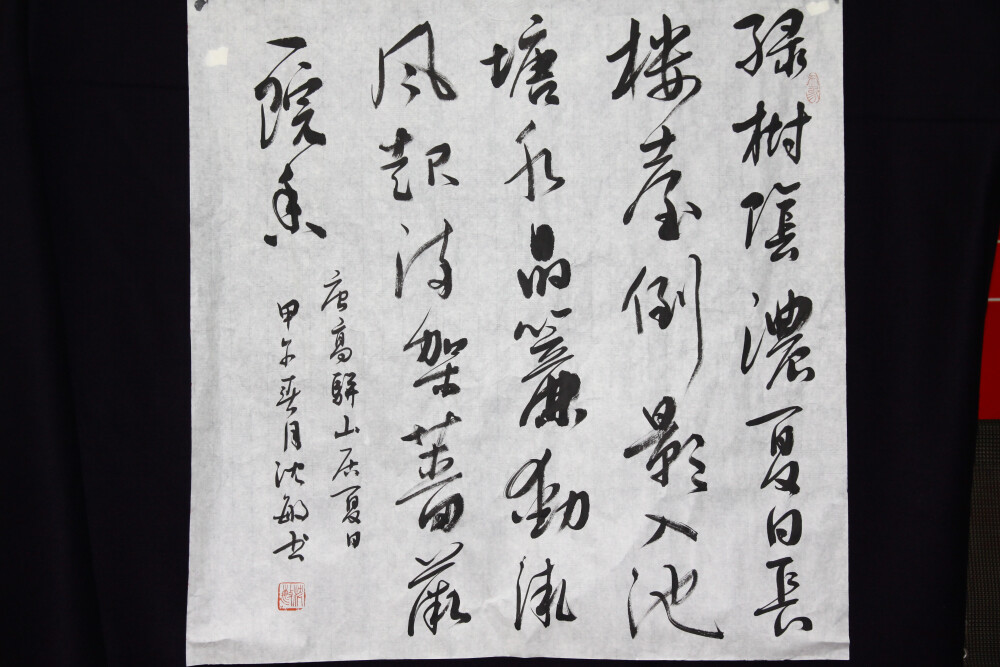 綠樹陰濃夏日長
樓臺倒影入池
塘水晶簾動微
風起滿架薔薇
一院香
唐高駢山居夏日
甲午春月沈敏书
沈敏